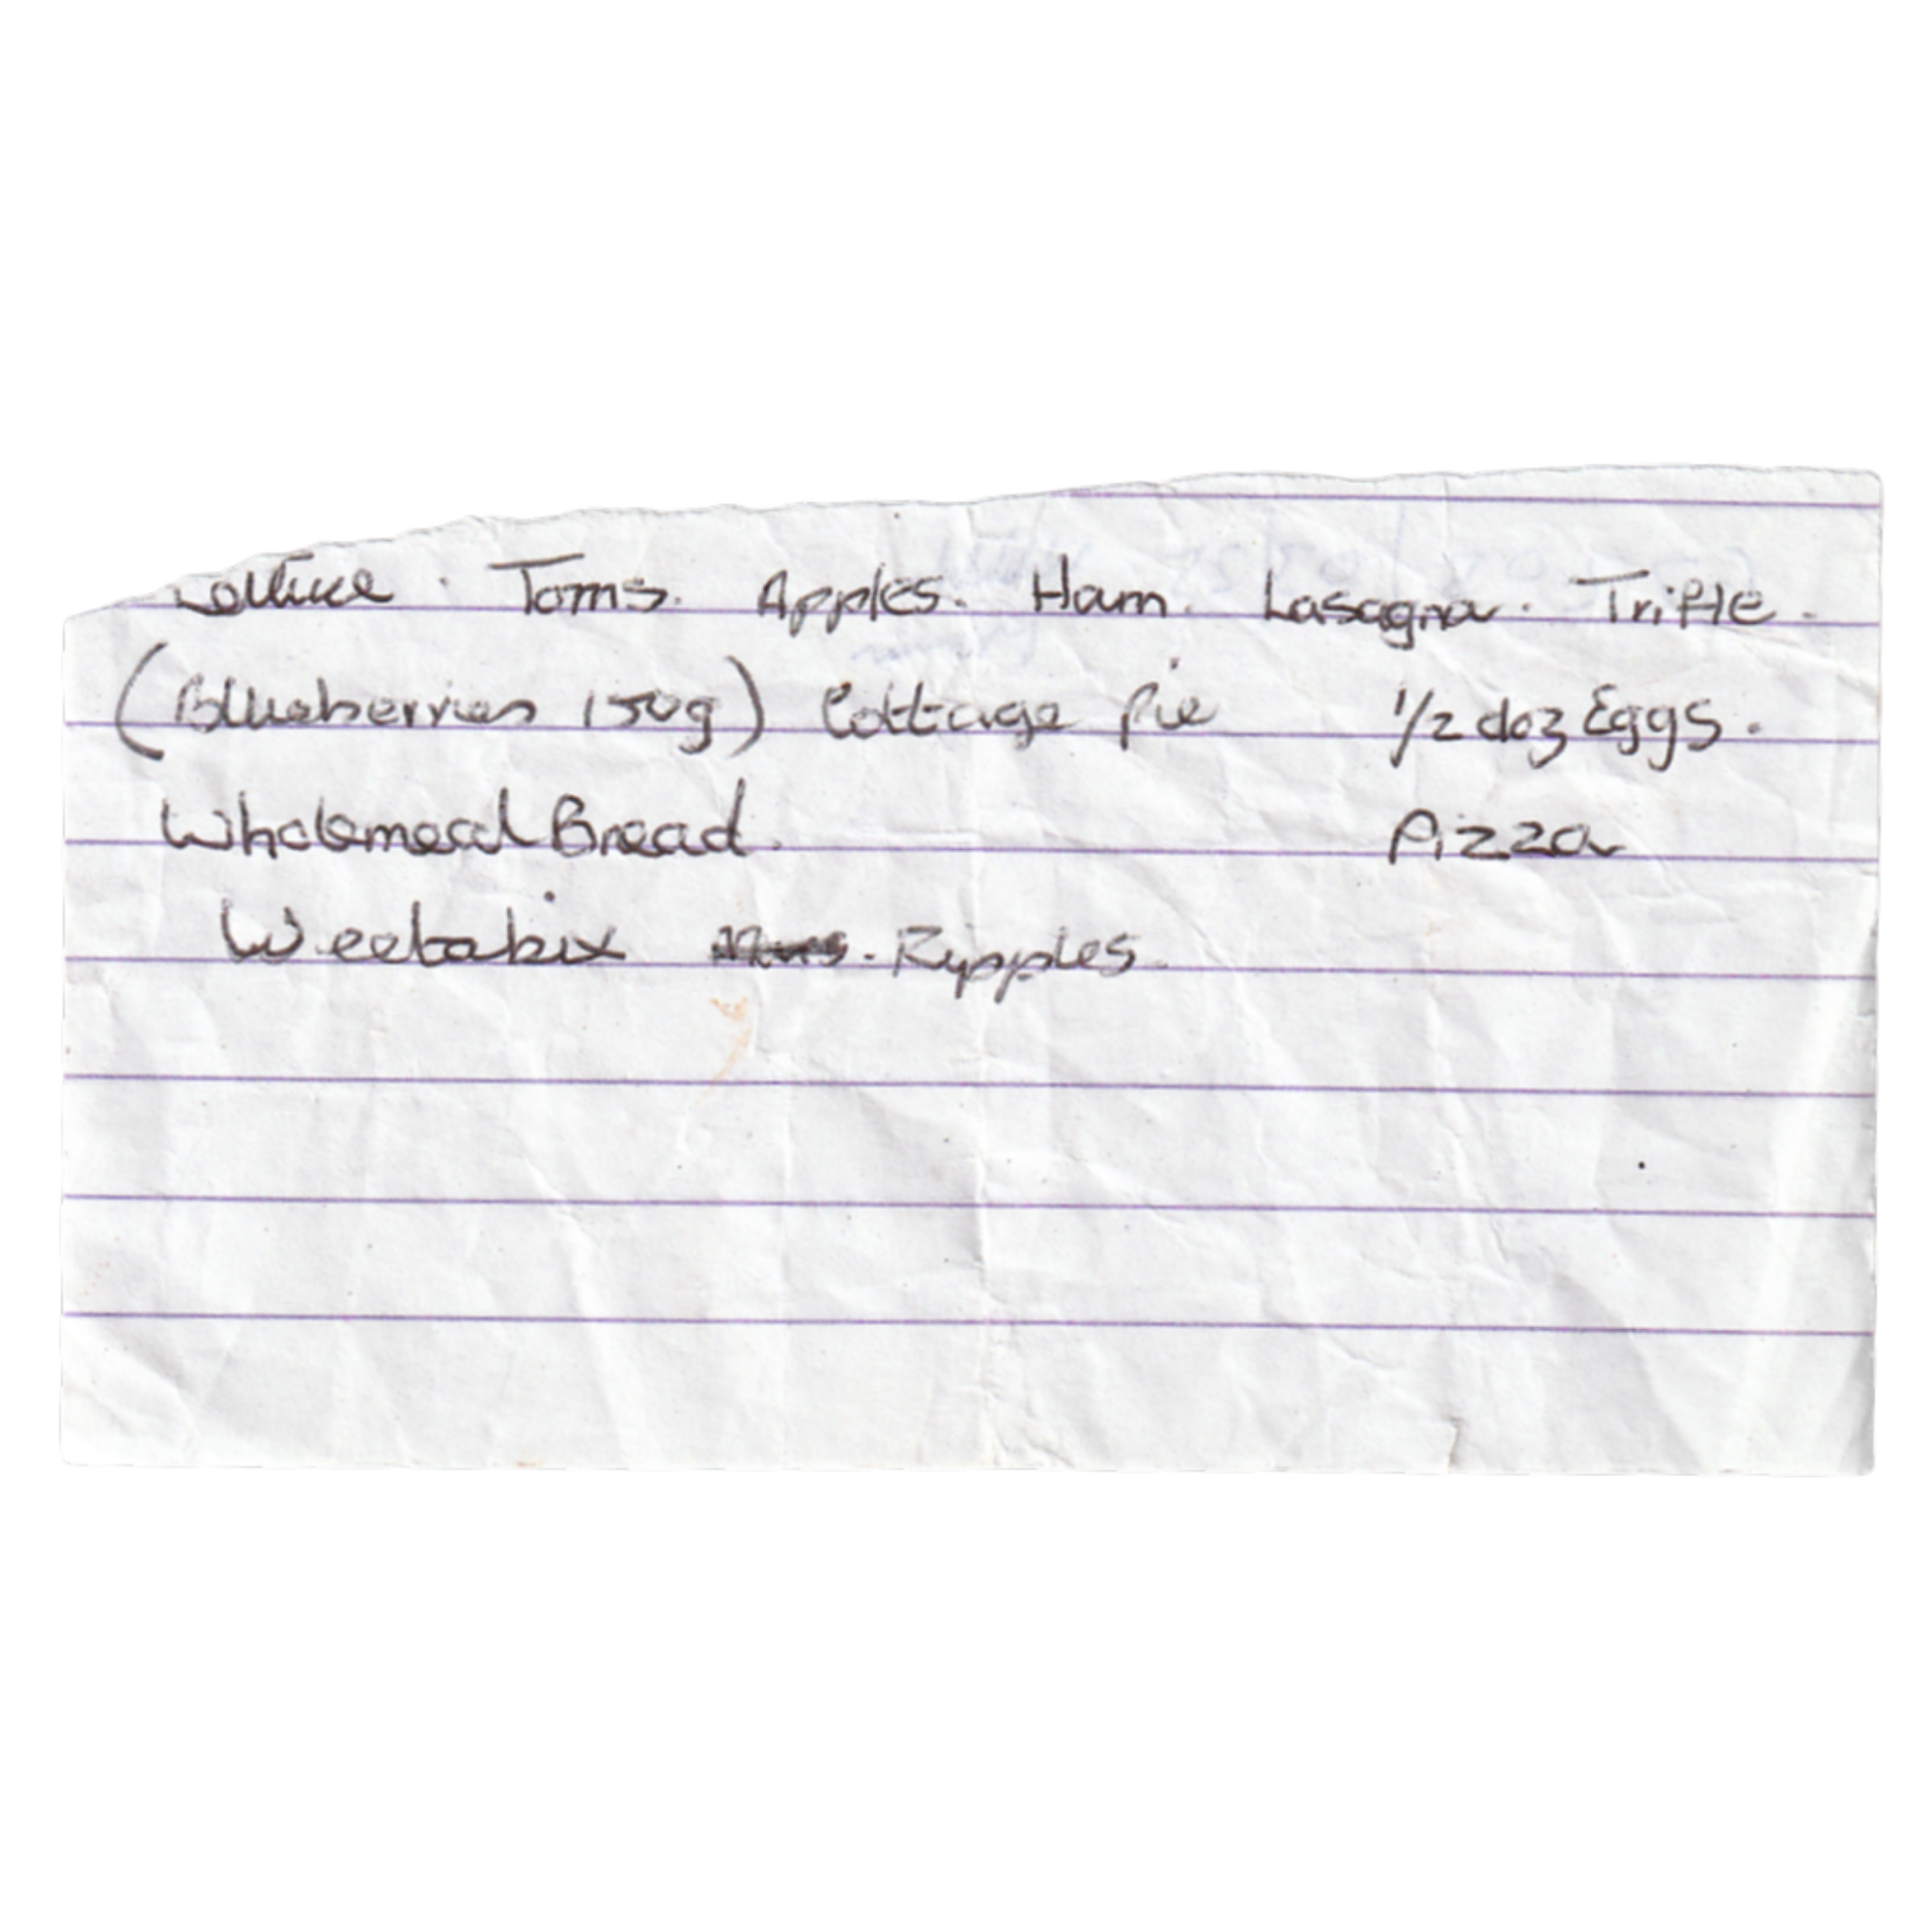 Lettuce . Toms. Apples. Ham. Lasagna. Trifle.
(Blueberries 150g) Cottage Pie 1/2 doz Eggs.
Wholemeal Bread. Pizza
Weetabix . Ripples.